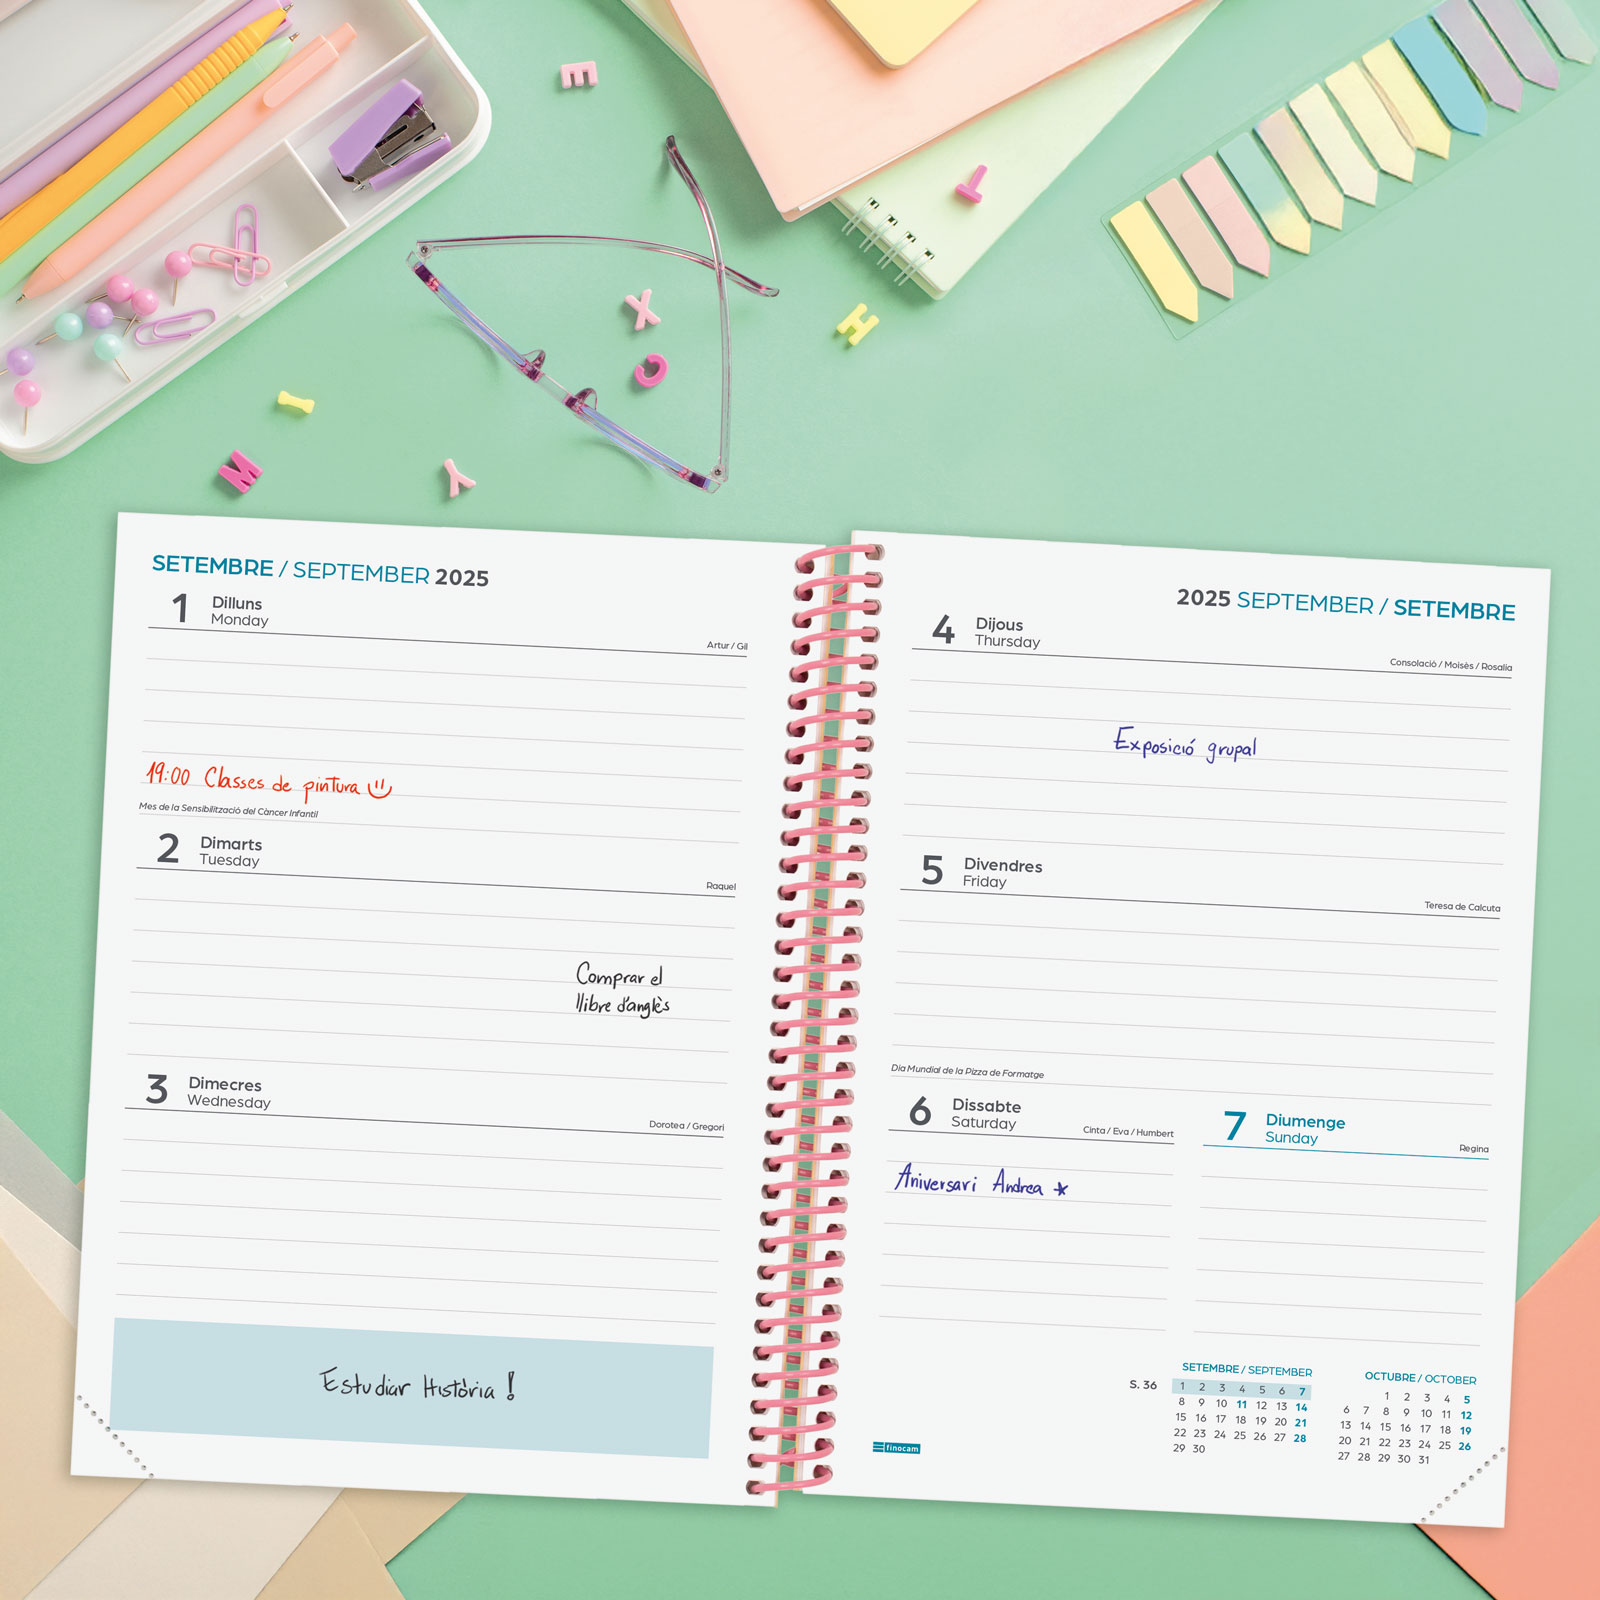 E
T
X
H
C
I
M
Y
SETEMBRE / SEPTEMBER 2025
1 Dilluns
Monday
Artur / Gil
19:00 Classes de pintura
Mes de la Sensibilització del Càncer Infantil
2 Dimarts
Tuesday
Raquel
Comprar el
llibre d'anglès
3 Dimecres
Wednesday
Dorotea / Gregori
Estudiar Història !
2025 SEPTEMBER / SETEMBRE
4 Dijous
Thursday
Consolació / Moisès / Rosalia
Exposició grupal
5 Divendres
Friday
Teresa de Calcuta
Dia Mundial de la Pizza de Formatge
6 Dissabte
Saturday
Cinta / Eva / Humbert
Aniversari Andrea
7 Diumenge
Sunday
Regina
finocam
S. 36
SETEMBRE / SEPTEMBER
1 2 3 4 5 6 7
8 9 10 11 12 13 14
15 16 17 18 19 20 21
22 23 24 25 26 27 28
29 30
OCTUBRE / OCTOBER
1 2 3 4 5
6 7 8 9 10 11 12
13 14 15 16 17 18 19
20 21 22 23 24 25 26
27 28 29 30 31